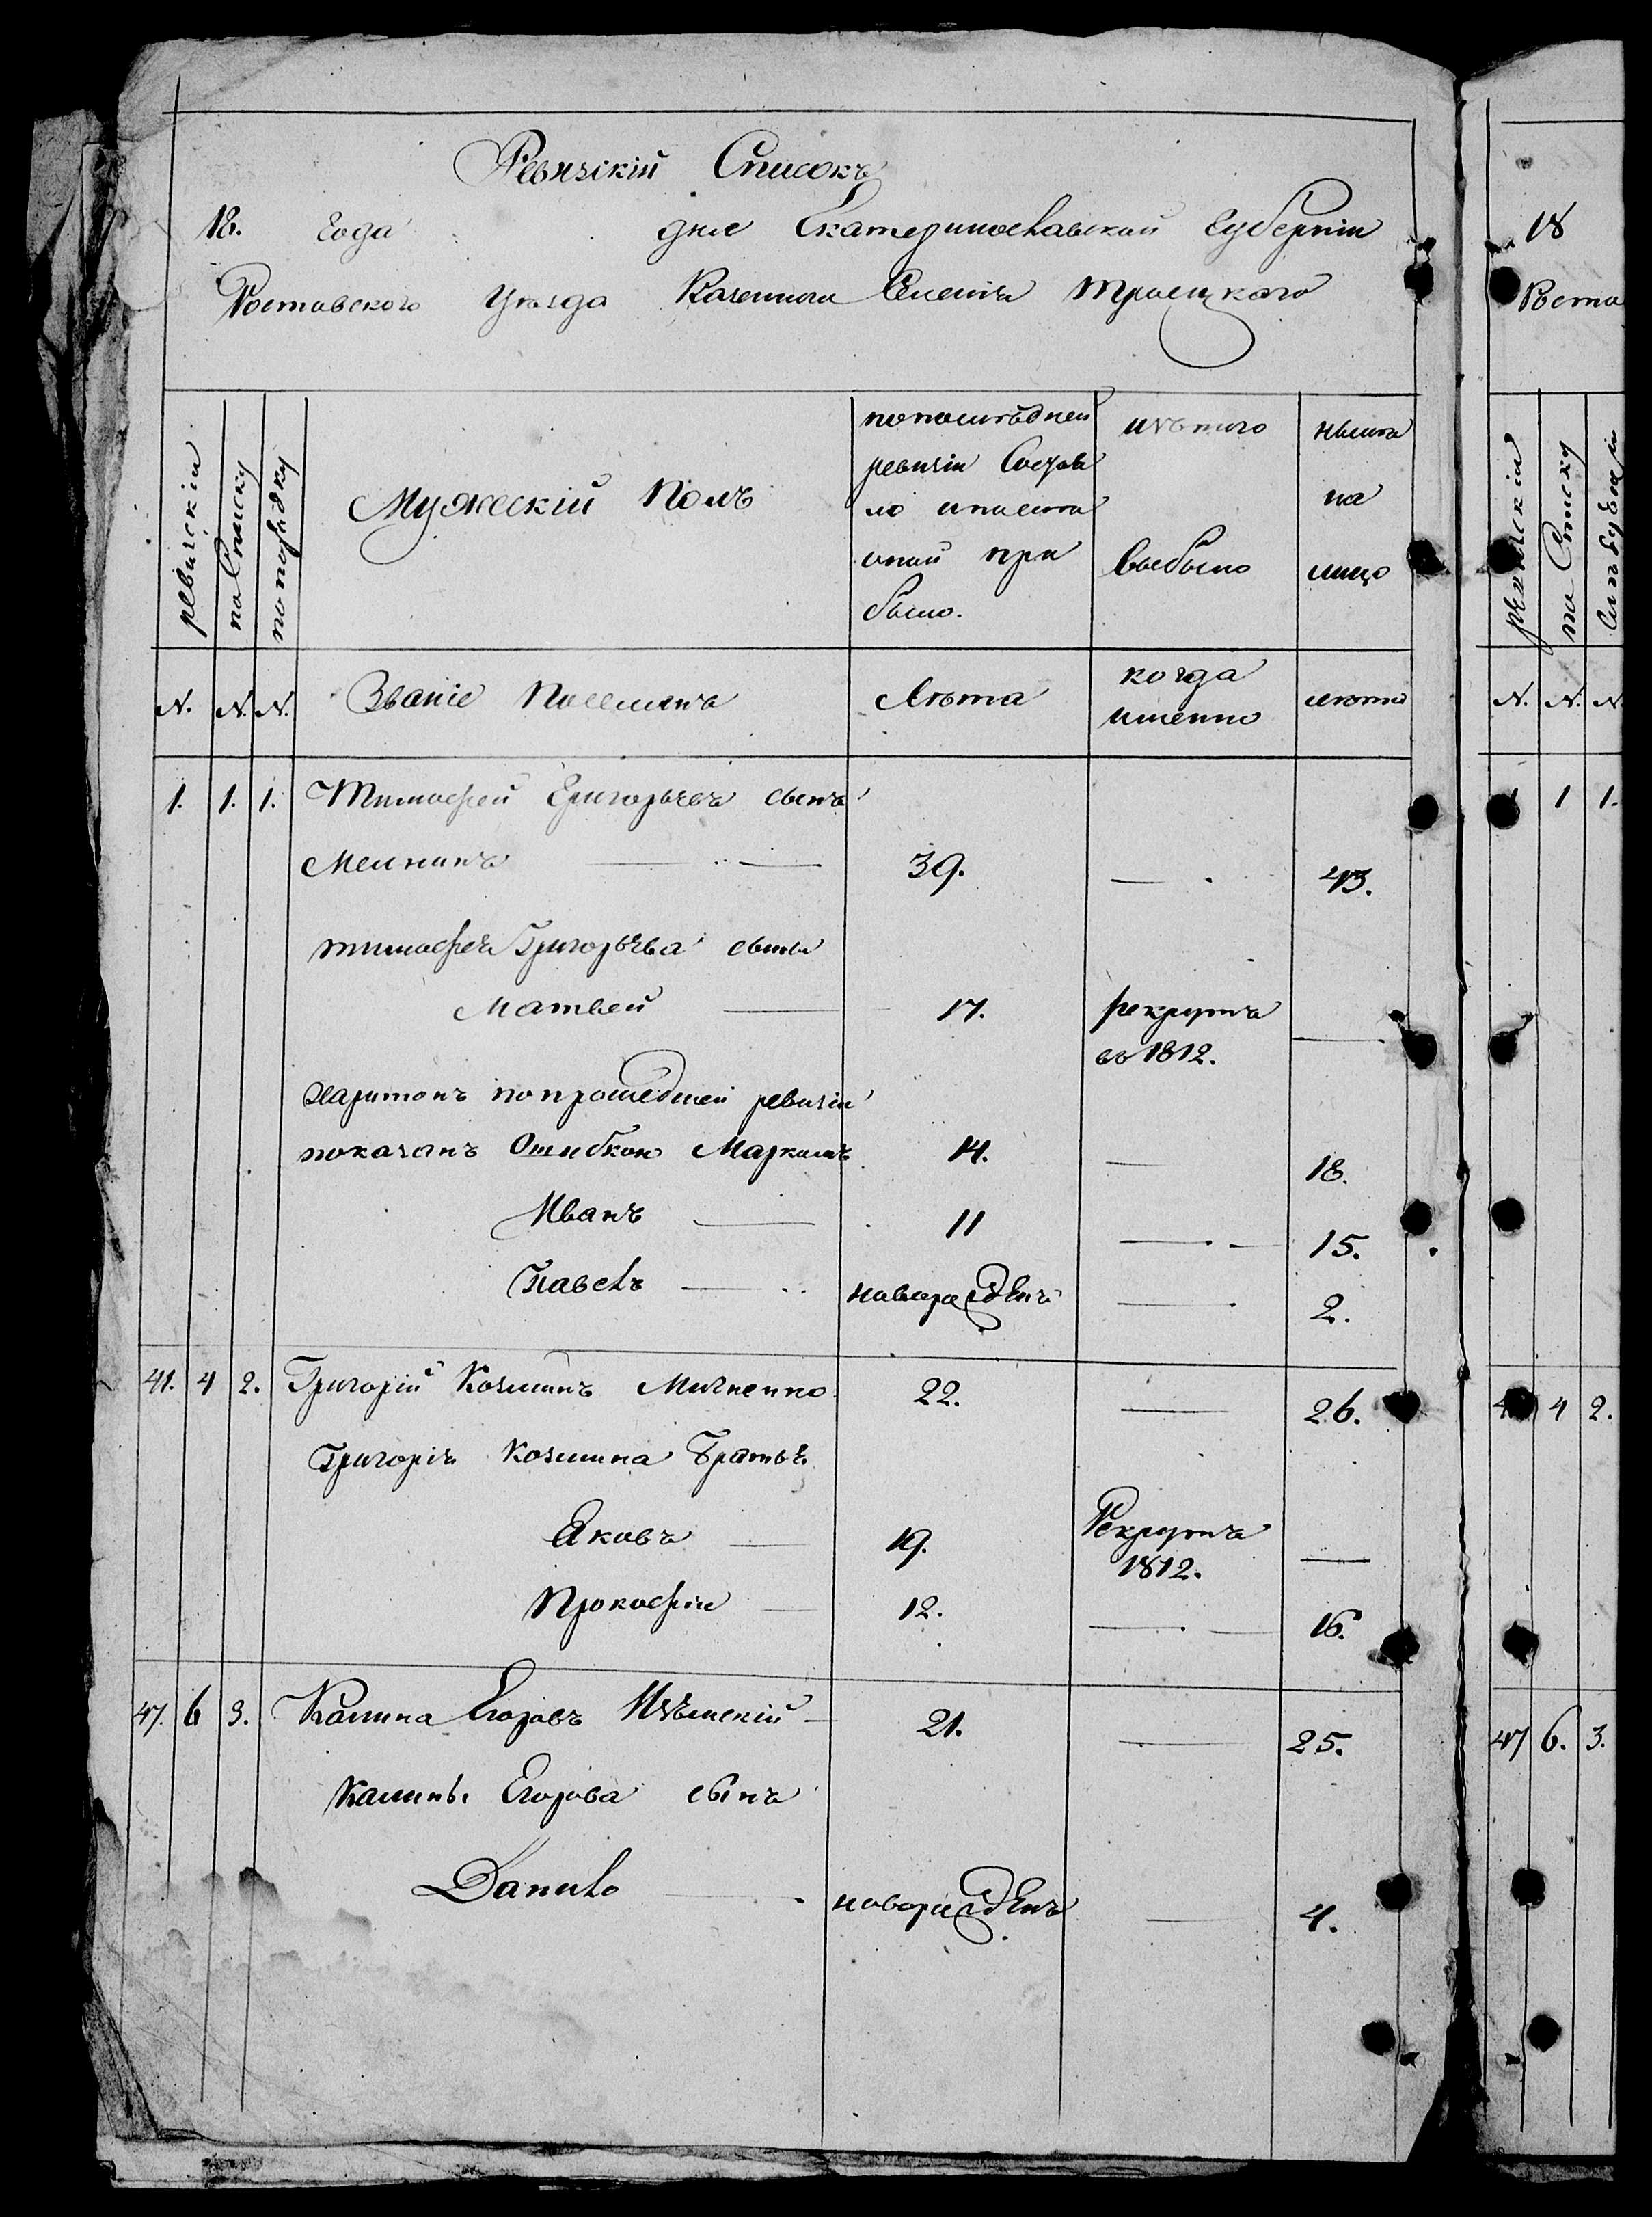 Ревизскій Списокъ
18. Года дня Екатеринославской Губерніи
Ростовского Уезда Казенного Селенія Троецкого
ревизскіи
по Списку
по порядку
Мужескій Полъ
по последней
ревизіи Состоя
ло и после
оной при
было.
изъ того
Выбыло
ныне
на
лицо
N. N. N. Званіе Поселянъ Лета
когда
именно
лета
1. 1. 1. Тимофей Григорьевъ сынъ
39. 43.
тимофея Григорьева сыны
Матвей 17. рекрутъ
во 1812.
Харитонъ по прошедшей ревизіи
показанъ Ошибкою Маркомъ 14. 18.
Иванъ 11 15.
Павелъ новорожденъ 2.
41. 4 2. Григорій Козминъ 22. 26.
Григорія Козмина Братья
Яковъ 19. Рекрутъ
1812.
Прокофіи 12. 16.
47. 6 3. Калина Егоровъ 21. 25.
Калины Егорова сынъ
Данило новорожденъ 4.
18
Росто
ревизскіи
по Списку
N. N. N.
1 1.
4 2.
47 6. 3.